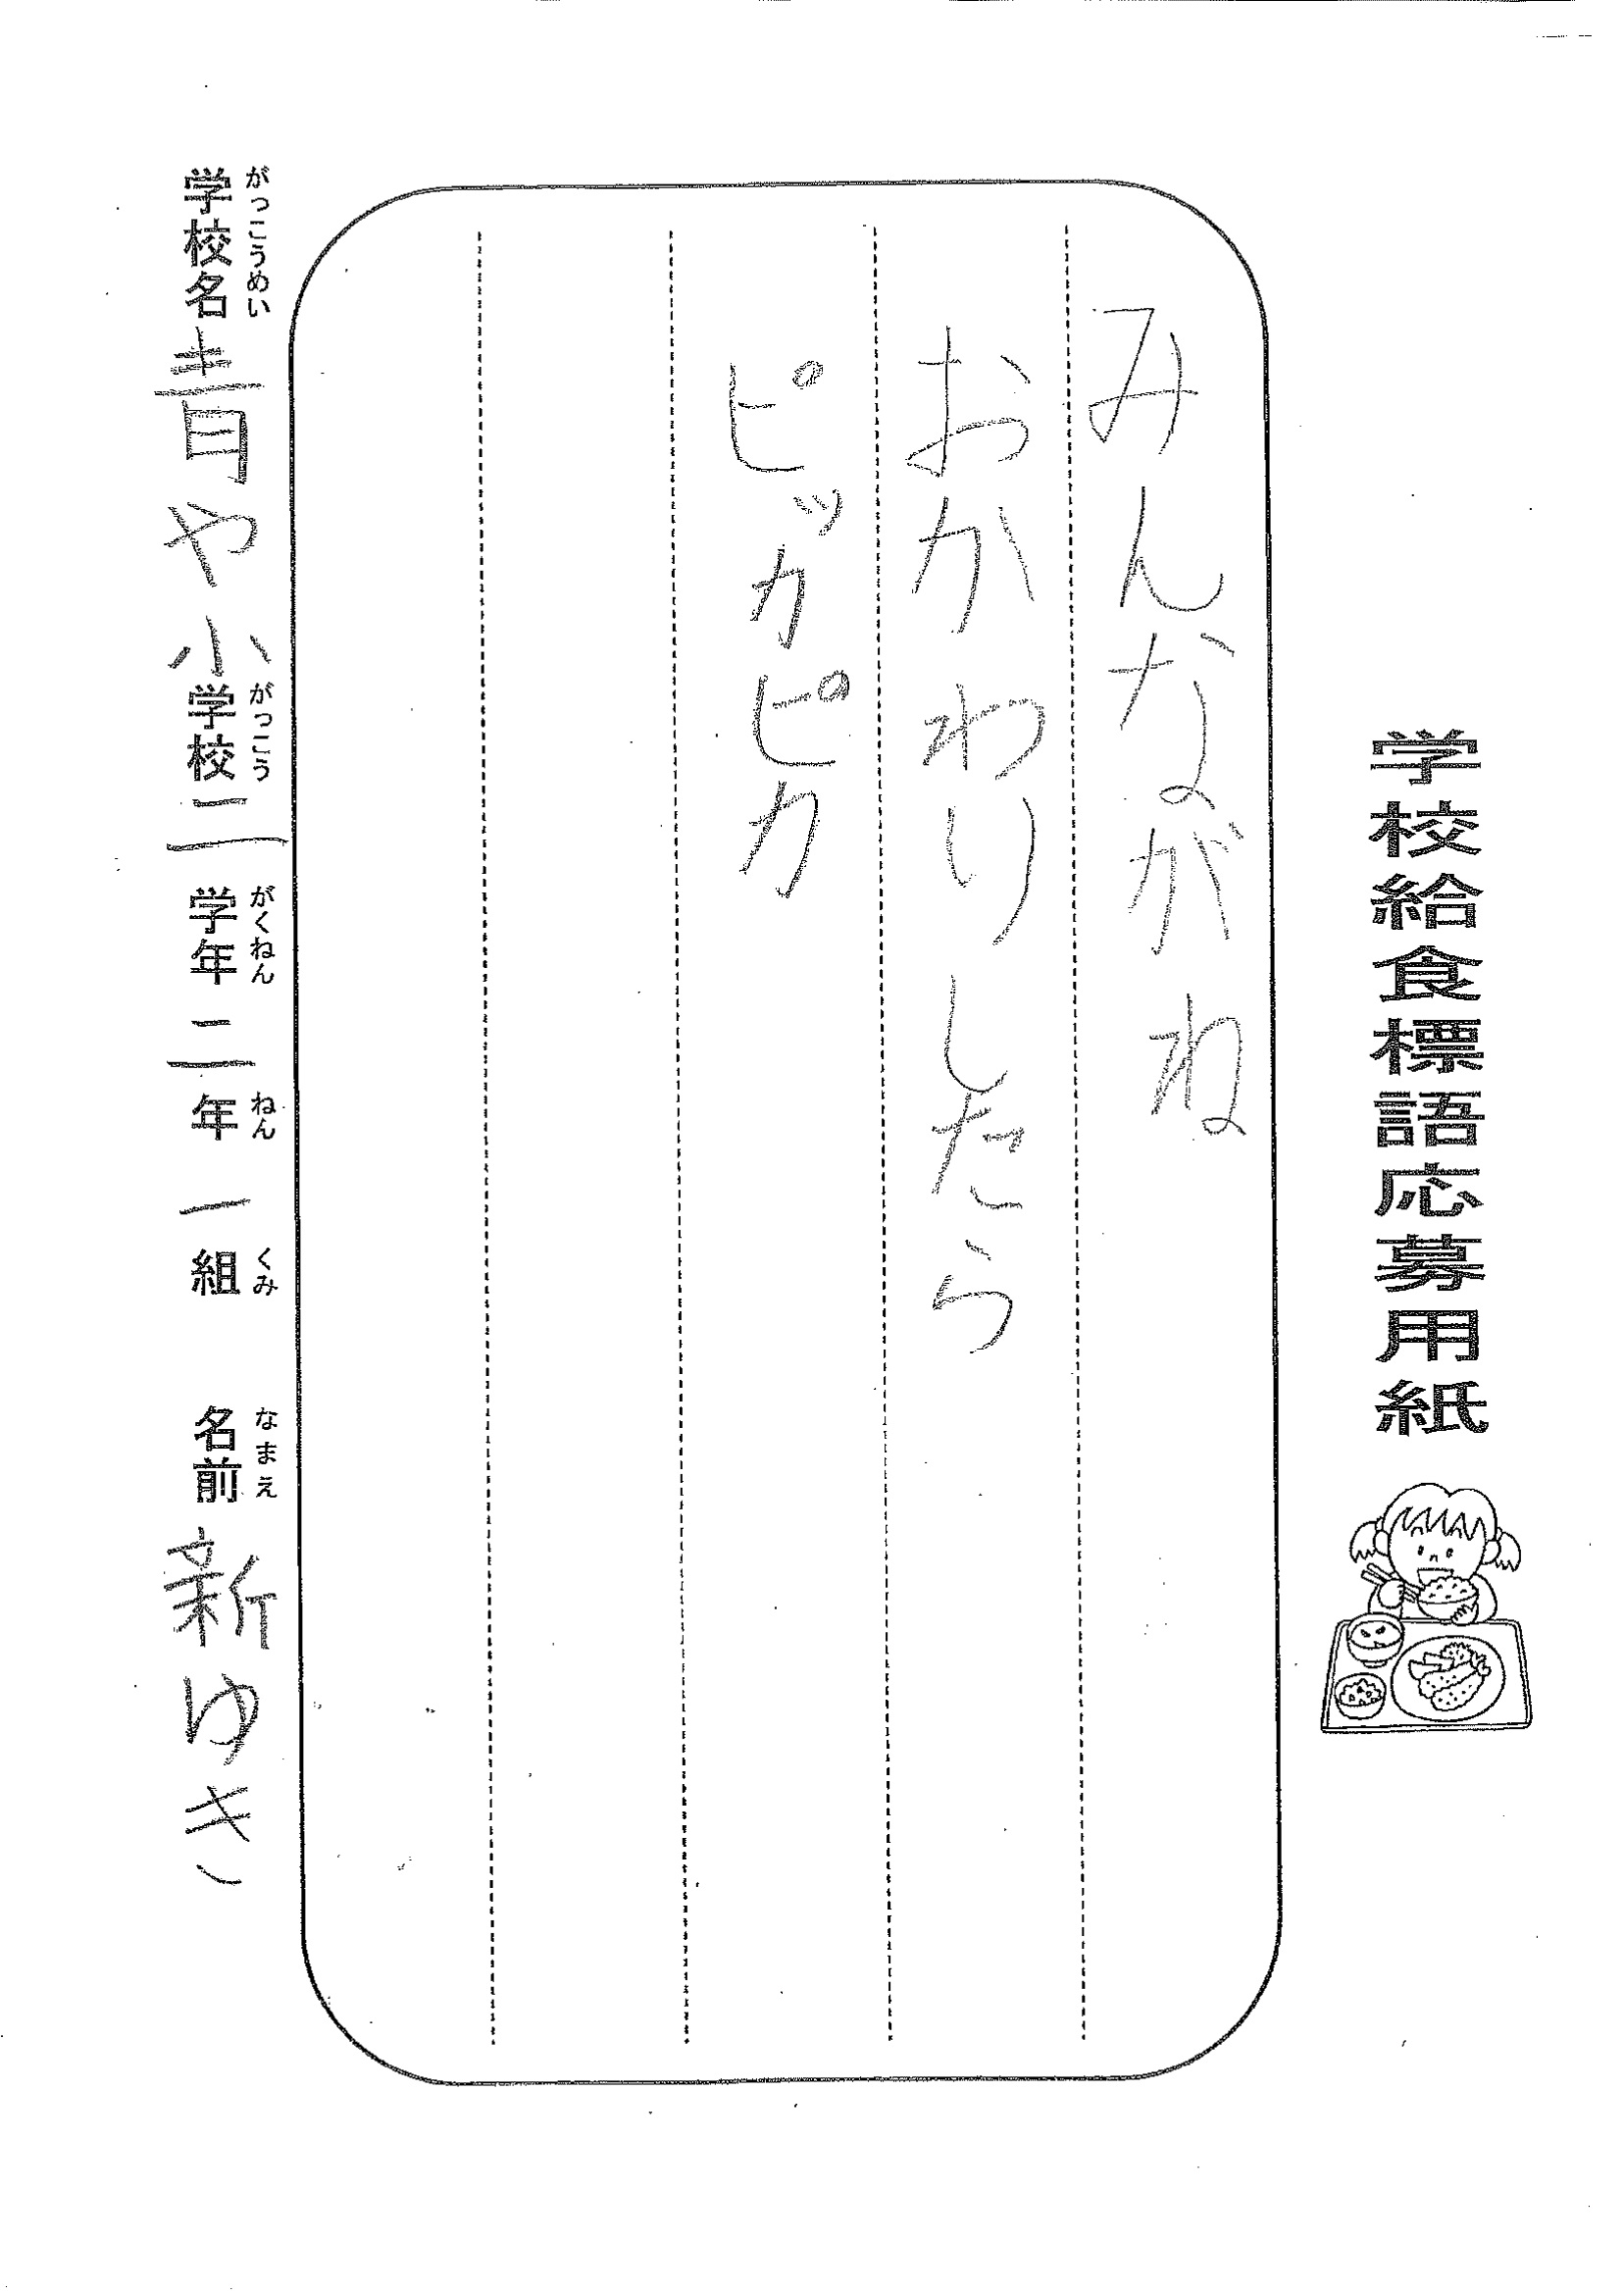 学校給食標語応募用紙
みんながね
おかわりしたら
ピッカピカ
がっこうめい がっこう がくねん ねん くみ なまえ
学校名 青や小学校 二 学年 二年 一組 名前 新ゆき